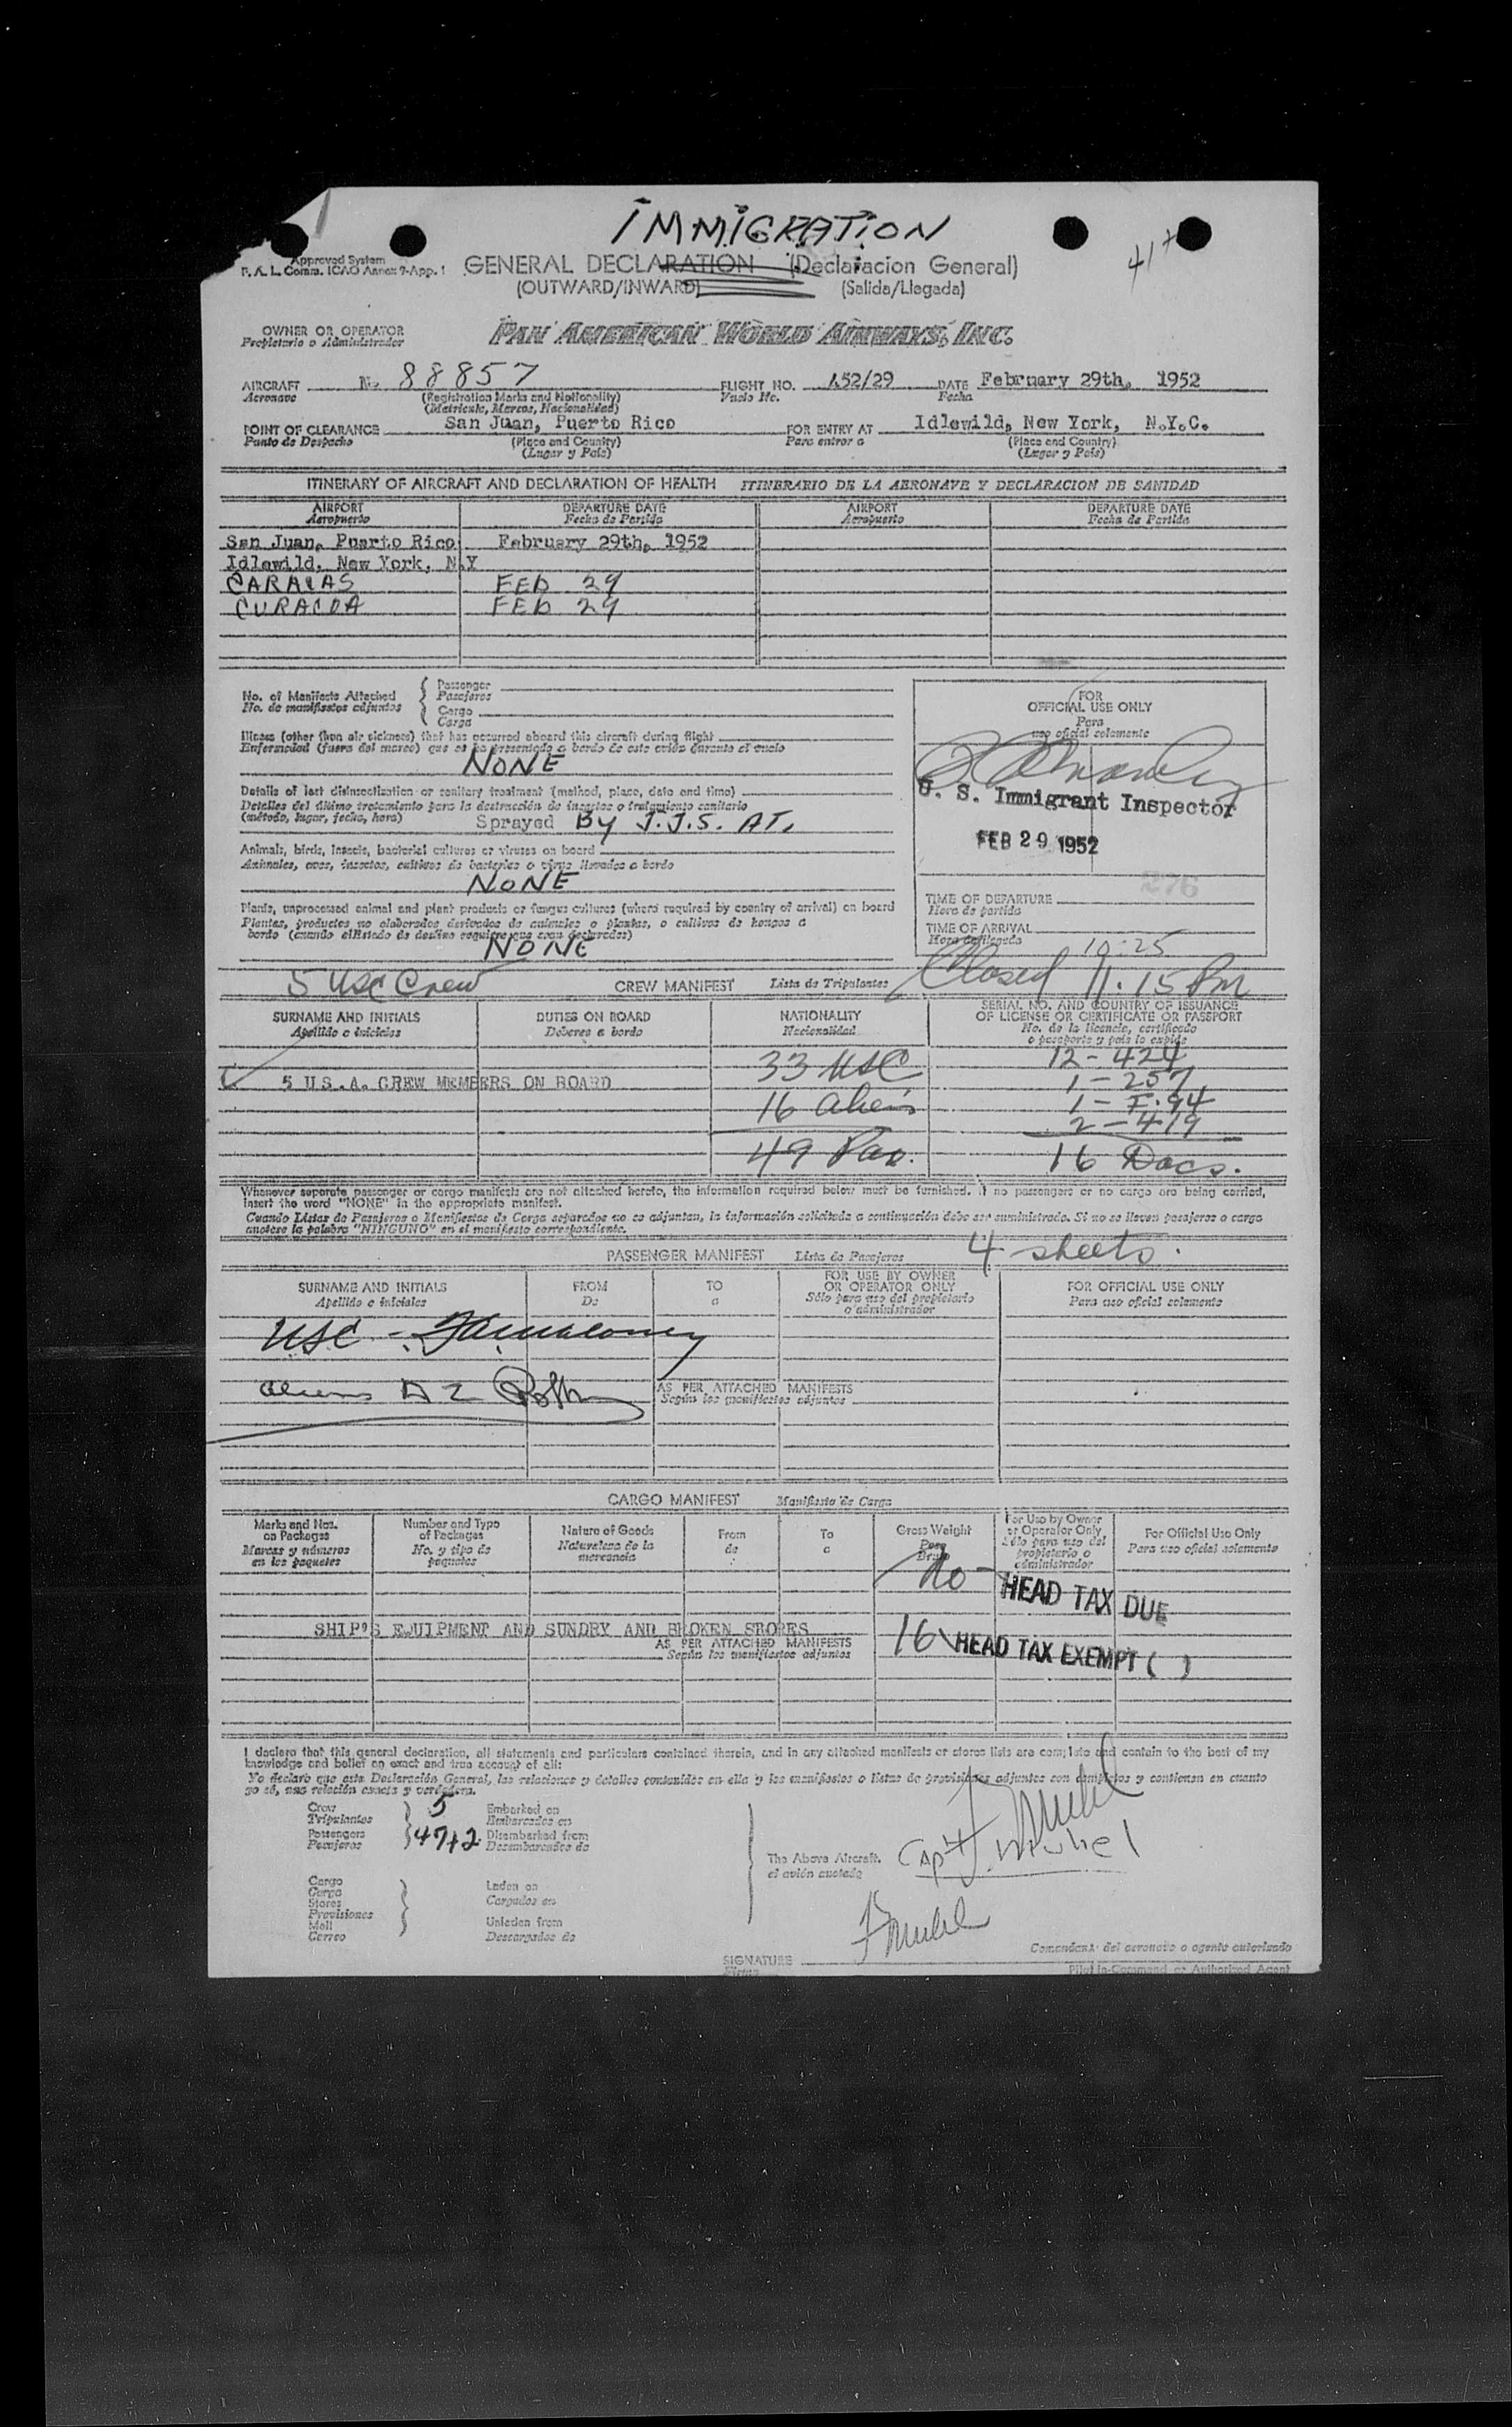 IMMIGRATION
Approved System
F. A. L. Comm. ICAO Annex 9-App. 1
GENERAL DECLARATION (Declaracion General)
(OUTWARD/INWARD) (Salida/Llegada)
OWNER OR OPERATOR
Propietario o Administrador
PAN AMERICAN WORLD AIRWAYS, INC.
AIRCRAFT N. 88857 FLIGHT NO. 452/29 DATE February 29th, 1952
Aeronave (Registration Marks and Nationality) Vuelo No. Fecha
(Matricula, Marcas, Nacionalidad)
POINT OF CLEARANCE San Juan, Puerto Rico FOR ENTRY AT Idlewild, New York, N.Y.C.
Punto de Despacho (Place and Country) Para entrar a (Place and Country)
(Lugar y País) (Lugar y País)
ITINERARY OF AIRCRAFT AND DECLARATION OF HEALTH ITINERARIO DE LA AERONAVE Y DECLARACION DE SANIDAD
AIRPORT DEPARTURE DATE AIRPORT DEPARTURE DATE
Aeropuerto Fecha de Partida Aeropuerto Fecha de Partida
San Juan, Puerto Rico February 29th, 1952
Idlewild, New York, N.Y
CARACAS FEB 29
CURACOA FEB 29
No. of Manifests Attached
No. de manifiestos adjuntos
Passenger
Pasajeros
Cargo
Carga
Illness (other than air sickness) that has occurred aboard this aircraft during flight
Enfermedad (fuera del mareo) que se ha presentado a bordo de este avión durante el vuelo
NONE
Details of last disinsectization or sanitary treatment (method, place, date and time)
Detalles del último tratamiento para la destrucción de insectos o tratamiento sanitario
(método, lugar, fecha, hora) Sprayed By J.J.S. AT.
Animals, birds, insects, bacterial cultures or viruses on board
Animales, aves, insectos, cultivos de bacterias o virus llevados a bordo
NONE
Plants, unprocessed animal and plant products or fungus cultures (where required by country of arrival) on board
Plantas, productos no elaborados derivados de animales o plantas, o cultivos de hongos a
bordo (cuando el Estado de destino requiere que sean declarados)
NONE
FOR
OFFICIAL USE ONLY
Para
uso oficial solamente
U. S. Immigrant Inspector
FEB 29 1952
276
TIME OF DEPARTURE
Hora de partida
TIME OF ARRIVAL
Hora de llegada 10:25
Closed 11.15 Pm
5 USC Crew CREW MANIFEST Lista de Tripulantes
SURNAME AND INITIALS DUTIES ON BOARD NATIONALITY SERIAL NO. AND COUNTRY OF ISSUANCE
OF LICENSE OR CERTIFICATE OR PASSPORT
Apellido e iniciales Deberes a bordo Nacionalidad No. de la licencia, certificado
o pasaporte y país lo expide
33 USC 12-424
5 U.S.A. CREW MEMBERS ON BOARD 1-257
16 Aliens 1-F.94
2-419
49 Pax. 16 Docs.
Whenever separate passenger or cargo manifests are not attached hereto, the information required below must be furnished. If no passengers or no cargo are being carried,
insert the word "NONE" in the appropriate manifest.
Cuando Listas de Pasajeros o Manifiestos de Carga separados no se adjuntan, la información solicitada a continuación debe ser suministrada. Si no se llevan pasajeros o carga
anótese la palabra "NINGUNO" en el manifiesto correspondiente.
PASSENGER MANIFEST Lista de Pasajeros 4 sheets.
SURNAME AND INITIALS FROM TO FOR USE BY OWNER
OR OPERATOR ONLY FOR OFFICIAL USE ONLY
Apellido e iniciales De a Sólo para uso del propietario
o administrador Para uso oficial solamente
USC -
Aliens
AS PER ATTACHED MANIFESTS
Según los manifiestos adjuntos
CARGO MANIFEST Manifiesto de Carga
Marks and Nos.
on Packages
Marcas y números
en los paquetes
Number and Type
of Packages
No. y tipo de
paquetes
Nature of Goods
Naturaleza de la
mercancía
From
de
To
a
Gross Weight
Peso
Bruto
For Use by Owner
or Operator Only
Sólo para uso del
propietario o
administrador
For Official Use Only
Para uso oficial solamente
No HEAD TAX DUE
SHIP'S EQUIPMENT AND SUNDRY AND BROKEN STORES
AS PER ATTACHED MANIFESTS
Según los manifiestos adjuntos
16 HEAD TAX EXEMPT ( )
I declare that this general declaration, all statements and particulars contained therein, and in any attached manifests or stores lists are complete and contain to the best of my
knowledge and belief an exact and true account of all:
Yo declaro que esta Declaración General, las relaciones y detalles contenidos en ella y los manifiestos o listas de provisiones adjuntos son completos y contienen en cuanto
yo sé, una relación exacta y verdadera.
Crew 5 Embarked on
Tripulantes Embarcados en
Passengers 47+2 Disembarked from
Pasajeros Desembarcados de
The Above Aircraft.
el avión anotado
Capt
Cargo
Carga
Stores
Provisiones
Mail
Correo
Laden on
Cargados en
Unladen from
Descargados de
SIGNATURE
Firma
Comandante del aeronave o agente autorizado
Pilot in-Command or Authorized Agent